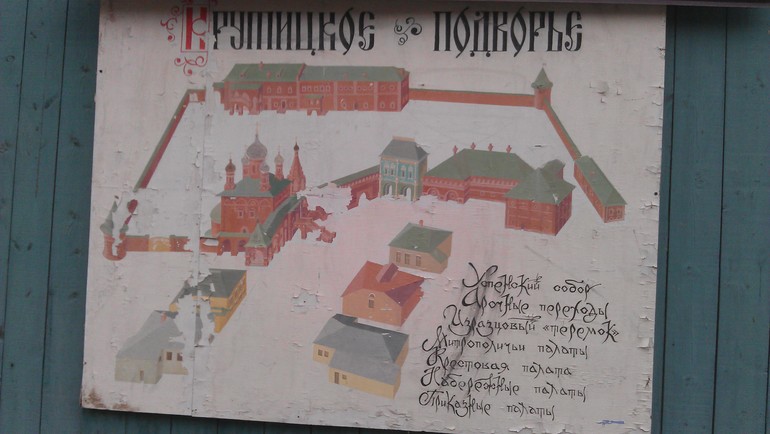 Крутицкое подворье
Успенский собор
Арочные переходы
Изразцовый «теремок»
Митрополичьи палаты
Крестовая палата
Набережные палаты
Приказные палаты